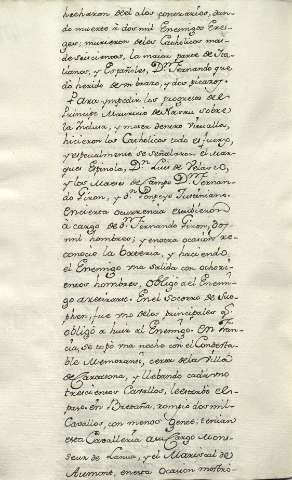 hecharon del a los contrarios, dan
do muerte à dos mil Enemigos Ere
ges; murieron de los Catholicos mas
de seiscientos, la maior parte de Ita
lianos, y Españoles, Dn Fernando que
dò herido de un brazo, y dos picazos
Para impedir los progresos del
Principe Mauricio de Nasau sobre
la Inclusa, y meter dentro vituallas,
hicieron los Catholicos todo esfuerzo,
y especialmente se señalaron el Mar
ques Espinola, Dn Luis de Velasco,
y los Maeses de Campo Dn Fernan
do Giron, y Dn Pompeyo Justiniano.
En cierta ocurrencia estubieron
a cargo de Dn Fernando Giron, dos
mil hombres; y en otra ocasion re
conocio la bateria, y haciendo
el Enemigo una salida con ochoci
entos hombres, obligò al Enemi
go a retirarse. En el Socorro de
fue uno de los principales q.
obligò a huir al Enemigo. En Fran
cia, se topò una noche con el Condesta
ble Memoransi, cerca de la Villa
de Carcasona, y llebando cada uno
trescientos Caballos,
paso en Bretaña, rompio dos mil
Caballos, con menos gente; tenian
esta Caballeria a su Cargo Mon
seur de y el Mariscal de
Aumont, en esta Ocasion mostrò